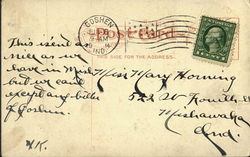 GOSHEN
IND.
Post Card
THIS SIDE FOR THE ADDRESS.
This isent as
nice as we
have in Mish
but we cant
except any better
of Goshen.
H.K.
Miss Mary Horning
Fourth St
Mishawaka
Ind.